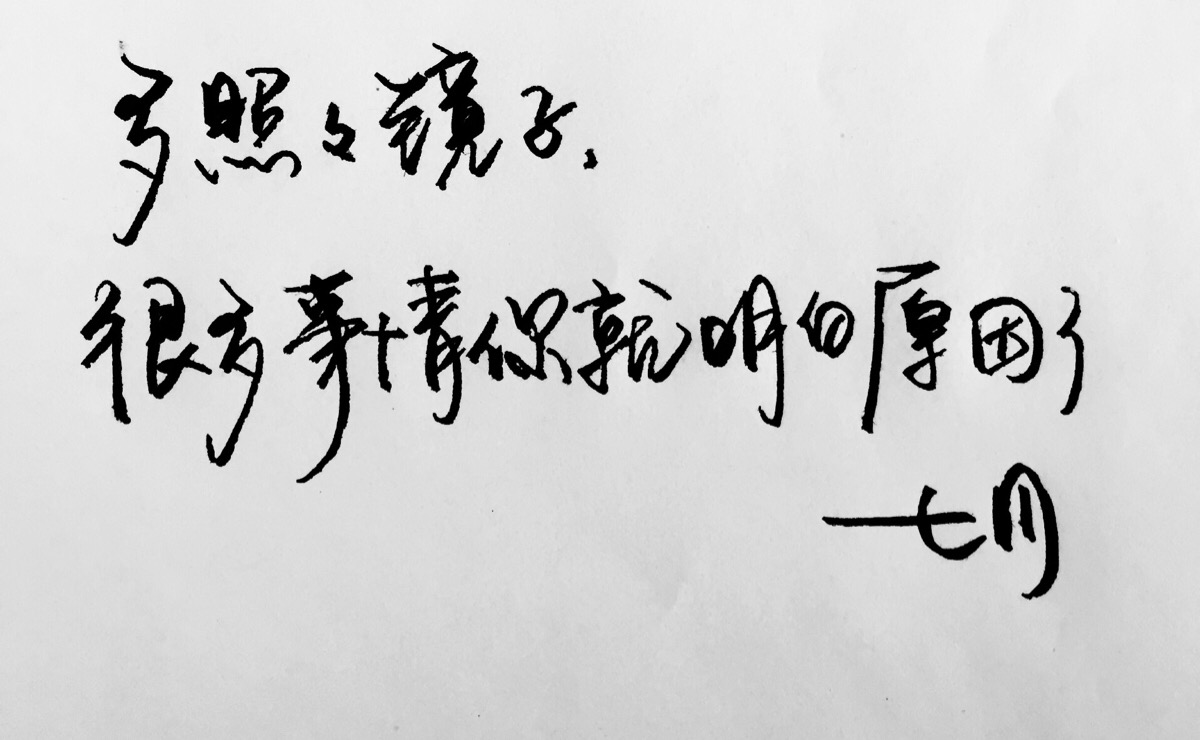 多照々镜子、
很多事情你就明白原因了
七月